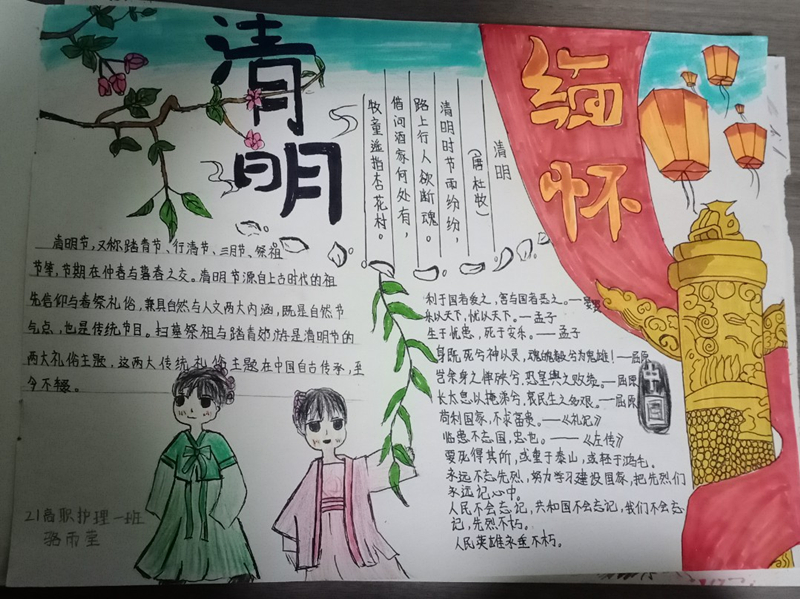 清明
清明
(唐 杜牧)
清明时节雨纷纷，
路上行人欲断魂。
借问酒家何处有，
牧童遥指杏花村。
缅怀
清明节，又称踏青节、行清节、三月节、祭祖
节等，节期在仲春与暮春之交。清明节源自上古时代的祖
先信仰与春祭礼俗，兼具自然与人文两大内涵，既是自然节
气点，也是传统节日。扫墓祭祖与踏青郊游是清明节的
两大礼俗主题，这两大传统礼俗主题在中国自古传承，至
今不辍。
利于国者爱之，害于国者恶之。——晏婴
乐以天下，忧以天下。——孟子
生于忧患，死于安乐。——孟子
身既死兮神以灵，魂魄毅兮为鬼雄！——屈原
岂余身之惮殃兮，恐皇舆之败绩。——屈原
长太息以掩涕兮，哀民生之多艰。——屈原
苟利国家，不求富贵。——《礼记》
临患不忘国，忠也。——《左传》
要死得其所，或重于泰山，或轻于鸿毛。
永远不忘先烈，努力学习建设国家，把先烈们
永远记心中。
人民不会忘记，共和国不会忘记，我们不会忘
记，先烈不朽。
人民英雄永垂不朽。
21高职护理一班
骆雨